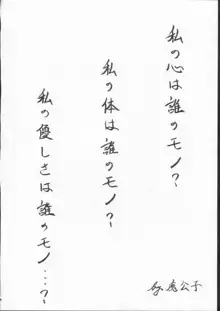 私の心は誰のモノ？
私の体は誰のモノ？
私の優しさは誰のモノ…？